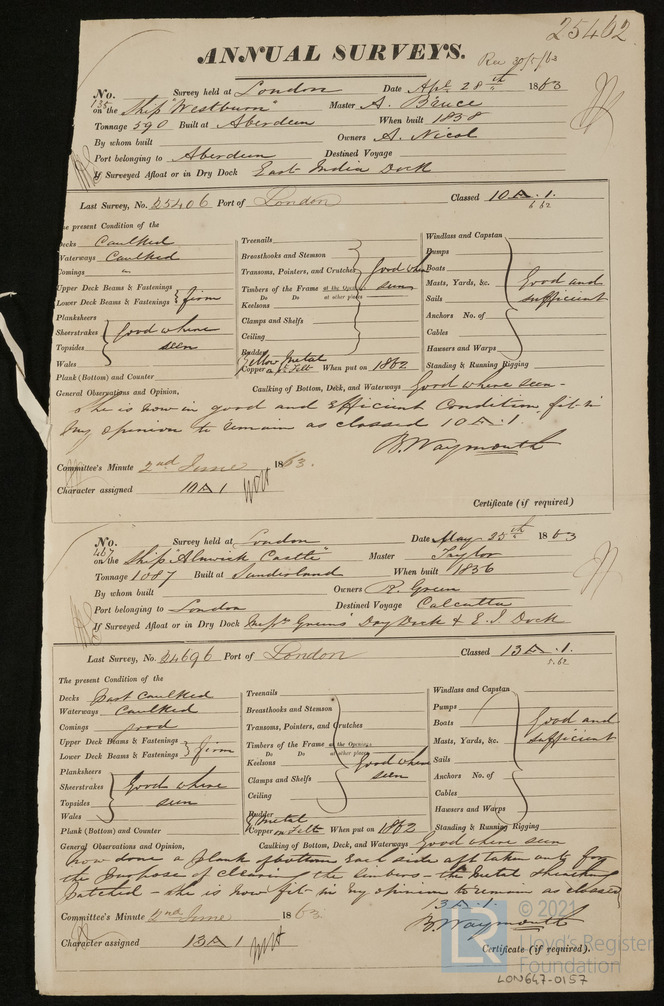 25402
ANNUAL SURVEYS.
Rec 30/5/63
No. 135 Survey held at London Date Apl 28th 1863
on the Ship "Westburn" Master A. Bruce
Tonnage 590 Built at Aberdeen When built 1858
By whom built Owners A. Nicol
Port belonging to Aberdeen Destined Voyage
If Surveyed Afloat or in Dry Dock East India Dock
Last Survey, No. 25406 Port of London Classed 10 A. 1.
6 62
The present Condition of the
Decks Caulked
Waterways Caulked
Comings "
Upper Deck Beams & Fastenings
Lower Deck Beams & Fastenings firm
Planksheers
Sheerstrakes good where
Topsides seen
Wales
Plank (Bottom) and Counter
Treenails
Breasthooks and Stemson
Transoms, Pointers, and Crutches good when
Timbers of the Frame at the Openings seen
Do Do at other places
Keelsons
Clamps and Shelfs
Ceiling
Rudder
Yellow Metal
Copper on Felt When put on 1862
Windlass and Capstan
Pumps
Boats
Masts, Yards, &c. Good and
Sails sufficient
Anchors No. of
Cables
Hawsers and Warps
Standing & Running Rigging
General Observations and Opinion, Caulking of Bottom, Deck, and Waterways Good where seen -
She is now in good and efficient Condition, fit in
my opinion to remain as classed 10 A. 1.
B. Waymouth
Committee's Minute 2nd June 1863.
Character assigned 10 A 1
Certificate (if required)
No. 467 Survey held at London Date May 25th 1863
on the Ship "Alnwick Castle" Master Taylor
Tonnage 1087 Built at Sunderland When built 1856
By whom built Owners R. Green
Port belonging to London Destined Voyage Calcutta
If Surveyed Afloat or in Dry Dock Messrs Greens' Dry Dock & E. I. Dock
Last Survey, No. 24696 Port of London Classed 13 A. 1.
5.62
The present Condition of the
Decks Part Caulked
Waterways Caulked
Comings good
Upper Deck Beams & Fastenings
Lower Deck Beams & Fastenings firm
Planksheers
Sheerstrakes Good where
Topsides seen
Wales
Plank (Bottom) and Counter
Treenails
Breasthooks and Stemson
Transoms, Pointers, and Crutches
Timbers of the Frame at the Openings
Do Do at other places
Keelsons Good where
Clamps and Shelfs seen
Ceiling
Rudder
Y Metal
Copper on Felt When put on 1862
Windlass and Capstan
Pumps
Boats Good and
Masts, Yards, &c. sufficient
Sails
Anchors No. of
Cables
Hawsers and Warps
Standing & Running Rigging
General Observations and Opinion, Caulking of Bottom, Deck, and Waterways Good where seen
Now done a plank of bottom each side aft taken out for
the purpose of clearing the limbers - the metal sheathing
patched - she is now fit in my opinion to remain as classed
13 A. 1.
B. Waymouth
Committee's Minute 2nd June 1863
Character assigned 13 A 1
Certificate (if required).
© 2021
LR Lloyd's Register
Foundation
LON647-0157